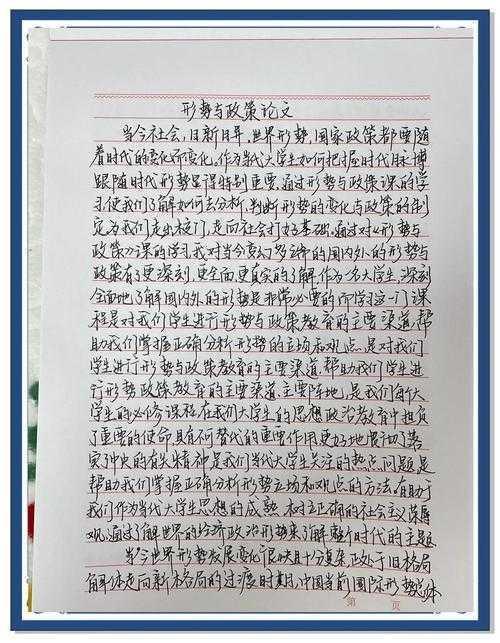 形势与政策论文
当今社会,日新月异,世界形势,国家政策都要随
着时代的变化而变化,作为当代大学生如何把握时代脉搏
跟随时代形势显得特别重要,通过形势与政策课的学
习,使我们了解如何去分析,判断形势的变化与政策的制
定为我们走出校门,走向社会打好基础,通过对《形势与
政策》课的学习,我对当今变幻多端的国内外的形势与
政策有了更深刻,更全面,更真实的了解,作为一名大学生,深刻
全面地了解国内外的形势是非常必要的,而学习这一门课
程是对我们学生进行形势与政策教育的主要渠道,帮
助我们掌握正确分析形势的立场和观点,是对我们
学生进行形势与政策教育的主要渠道,帮助我们学生进
行形势政策教育的主要渠道,主要阵地,是我们每个大
学生的必修课程,在我们大学生的思想政治教育中担负
了重要的使命,具有不可替代的重要作用,更好地贯彻了落
实中央的有关精神是我们当代大学生关注的热点问题,是
帮助我们掌握正确分析形势立场和观点的方法,有助于
我们作为当代大学生思想的成熟,树立正确的社会主义荣辱
观,通过了解世界的经济政治形势来了解整个时代的主题
当今世界形势发展变化很快且十分复杂,正处于旧格局
解体走向新格局的过度时期,中国当前国际形势总体
第 页